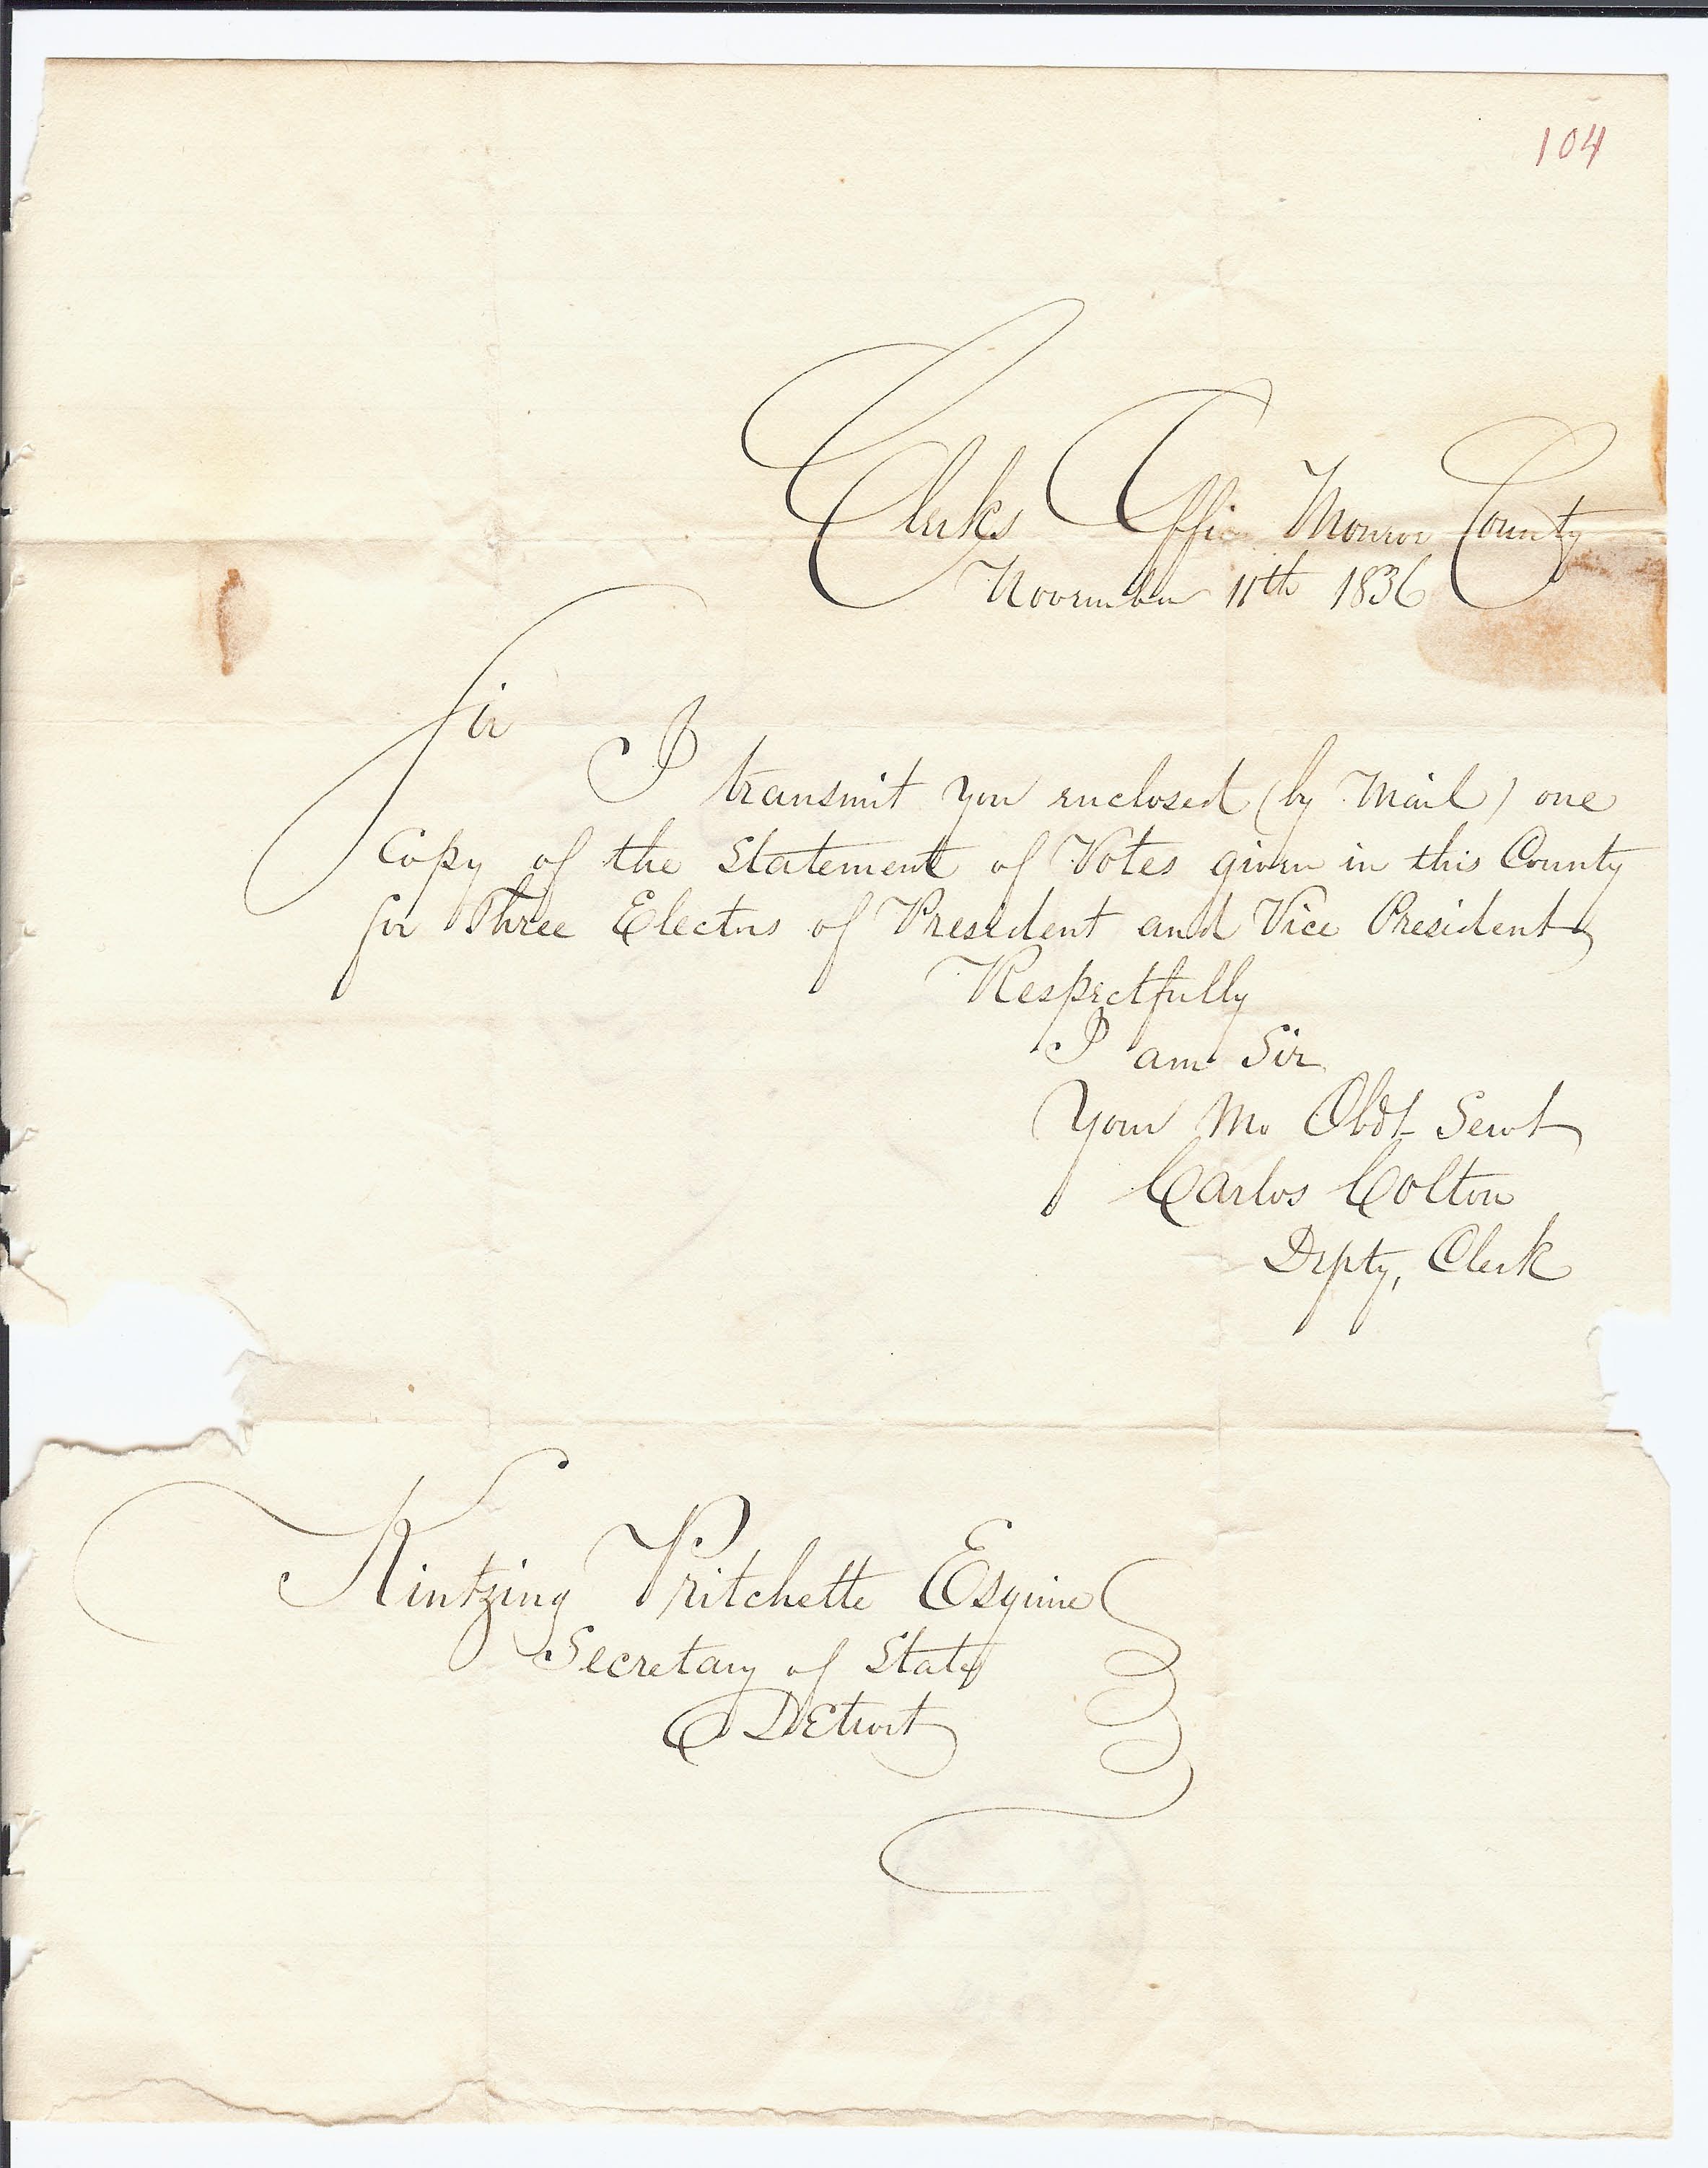 104
Clerks Office Monroe County
November 11th 1836
Sir
I transmit you enclosed (by Mail) one
Copy of the Statement of Votes given in this County
for Three Electors of President and Vice President
Respectfully
I am Sir
Your Mo Obdt Servt
Carlos Colton
Depty, Clerk
Kintzing Pritchette Esquire
Secretary of State
Detroit